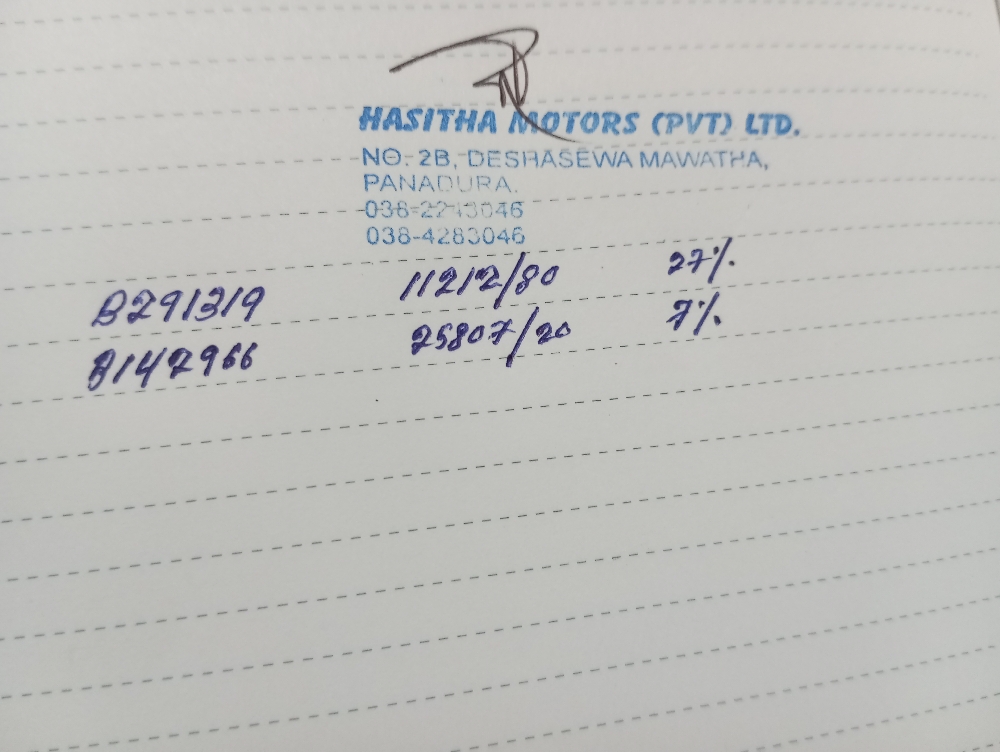 HASITHA MOTORS (PVT) LTD.
NO. 2B, DESHASEWA MAWATHA,
PANADURA.
038-2243046
038-4283046
B291319 11212/80 27%
B142966 25807/20 7%